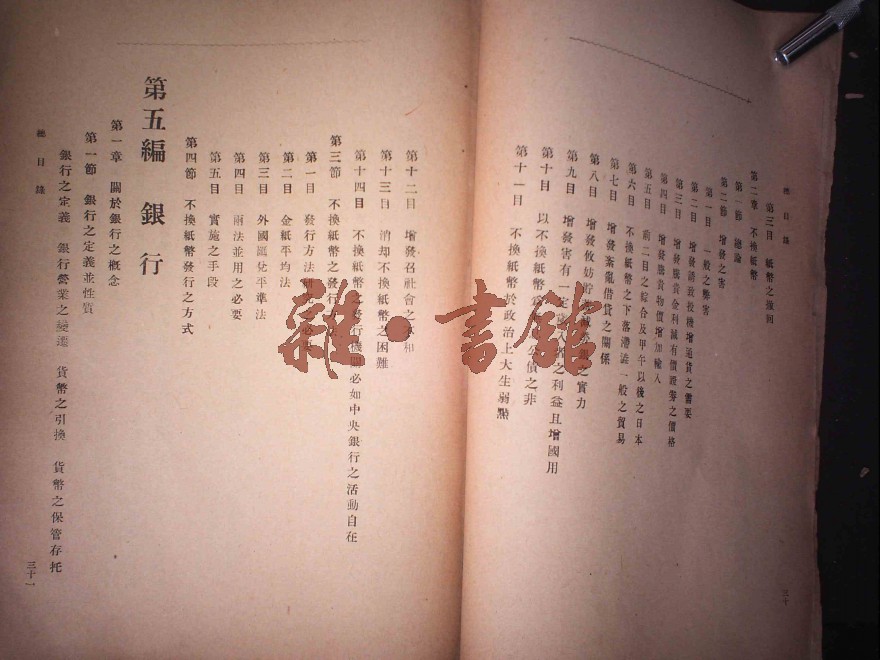 總目錄
第三目 紙幣之強囘
第二章 不換紙幣
第一節 總論
第二節 增發之害
第一目 一般之弊害
第二目 增發誘致投機增通貨之需要
第三目 增發騰貴金利減有價證劵之價格
第四目 增發騰貴物價增加輸入
第五目 前二目之綜合及甲午以後之日本
第六目 不換紙幣之下落滯澁一般之貿易
第七目 增發紊亂借貸之關係
第八目 增發攸妨貯 之實力
第九目 增發害有一定 之利益且增國用
第十目 以不換紙幣 公債之非
第十一目 不換紙幣於政治上大生弱點
三十
第十二目 增發召社會之 和
第十三目 消却不換紙幣之困難
第十四目 不換紙幣之發行機關必如中央銀行之活動自在
第三節 不換紙幣之發行
第一目 發行方法 必
第二目 金紙平均法
第三目 外國匯兌平準法
第四目 兩法並用之必要
第五目 實施之手段
第四節 不換紙幣發行之方式
第五編 銀行
第一章 關於銀行之概念
第一節 銀行之定義並性質
銀行之定義 銀行營業之變遷 貨幣之引換 貨幣之保管存托
總目錄
三十一
雜·書館